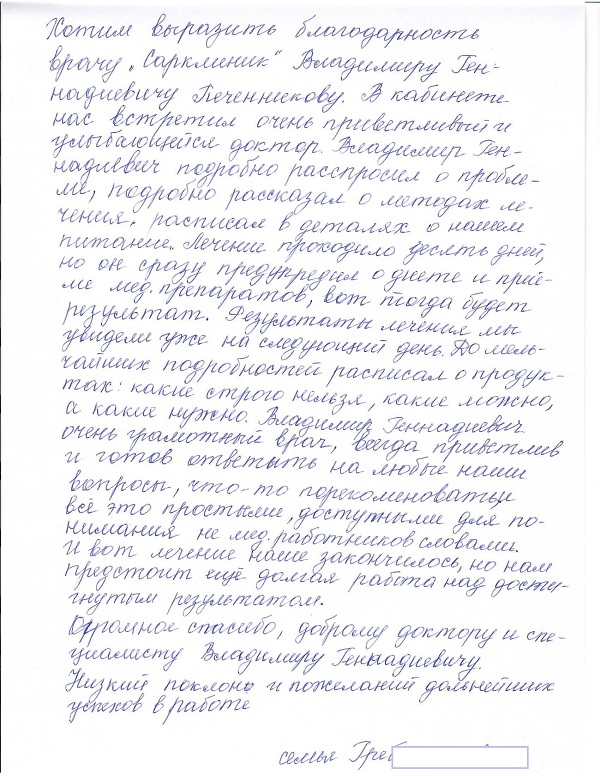 Хотим выразить благодарность
врачу „Саркклиник" Владимиру Ген-
надиевичу Печенникову. В кабинете
нас встретил очень приветливый и
улыбающейся доктор. Владимир Ген-
надиевич подробно расспросил о пробле-
ме, подробно рассказал о методах ле-
чения, расписал в деталях о нашем
питание. Лечение проходило десять дней,
но он сразу предупредил о диете и приё-
ме мед. препаратов, вот тогда будет
результат. Результаты лечения мы
увидели уже на следующий день. До мель-
чайших подробностей расписал о продук-
тах: какие строго нельзя, какие можно,
а какие нужно. Владимир Геннадиевич
очень грамотный врач, всегда приветлив
и готов ответыть на любые наши
вопросы, что-то порекоменовать и
всё это простыми, доступными для по-
нимания не мед. работников словами.
И вот лечение наше закончилось, но нам
предстоит ещё долгая работа над дости-
гнутым результатом.
Огромное спасибо, доброму доктору и спе-
циалисту Владимиру Геннадиевичу.
Низкий поклон и пожеланий дальнейших
успехов в работе
семья Греб